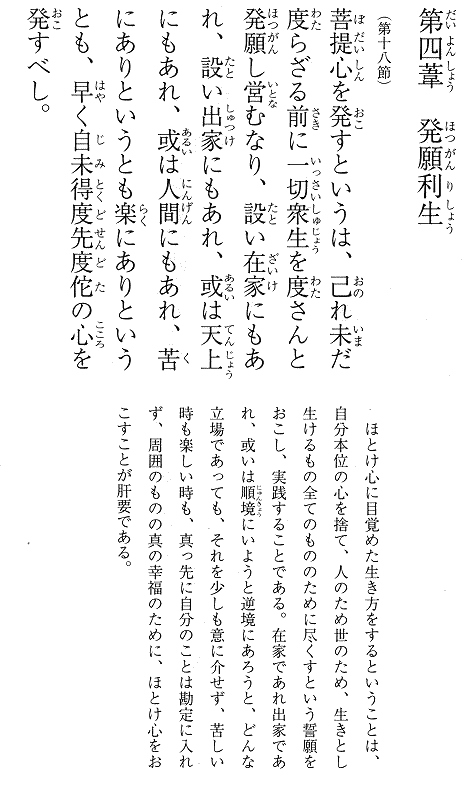 第四葦　発願利生
（第十八節）
菩提心を発すというは、己れ未だ
度らざる前に一切衆生を度さんと
発願し営むなり、設い在家にもあ
れ、設い出家にもあれ、或は天上
にもあれ、或は人間にもあれ、苦
にありというとも楽にありという
とも、早く自未得度先度佗の心を
発すべし。
ほとけ心に目覚めた生き方をするということは、
自分本位の心を捨て、人のため世のため、生きとし
生けるもの全てのもののために尽くすという誓願を
おこし、実践することである。在家であれ出家であ
れ、或いは順境にいようと逆境にあろうと、どんな
立場であっても、それを少しも意に介せず、苦しい
時も楽しい時も、真っ先に自分のことは勘定に入れ
ず、周囲のものの真の幸福のために、ほとけ心をお
こすことが肝要である。